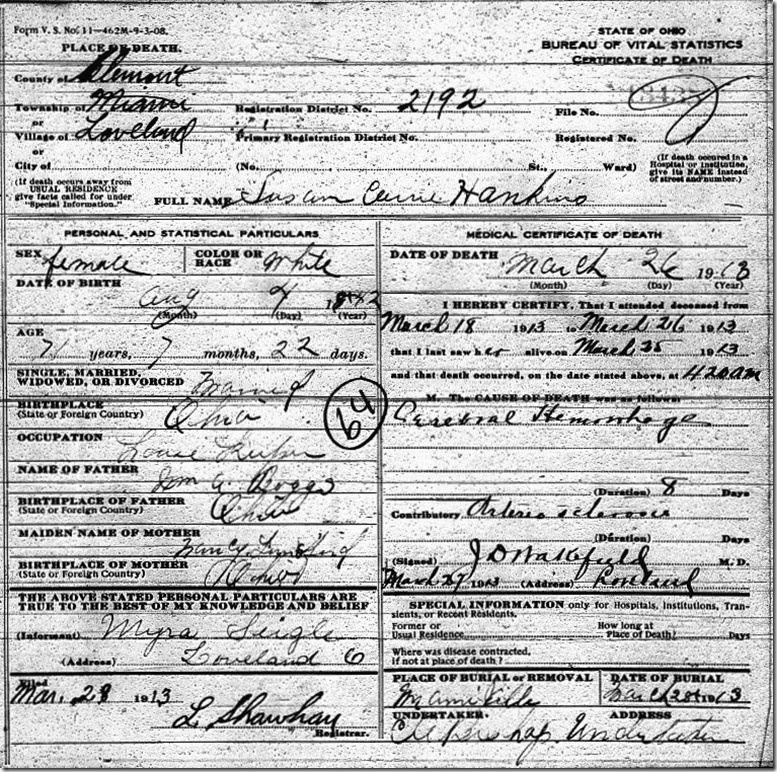 Form V. S. No. 11—462M-9-3-08.
PLACE OF DEATH.
STATE OF OHIO
BUREAU OF VITAL STATISTICS
CERTIFICATE OF DEATH
County of Clemont
Township of Miami
or
Village of Loveland
or
City of
Registration District No. 2192
File No.
Primary Registration District No.
Registered No.
(No. St., Ward)
(If death occured in a
Hospital or Institution,
give its NAME instead
of street and number.)
(If death occurs away from
USUAL RESIDENCE
give facts called for under
"Special Information.")
FULL NAME Susan Hankins
PERSONAL AND STATISTICAL PARTICULARS
SEX female
COLOR OR
RACE White
DATE OF BIRTH
Aug 4
(Month) (Day) (Year)
AGE
71 years, 7 months, 22 days.
SINGLE, MARRIED,
WIDOWED, OR DIVORCED Married
BIRTHPLACE
(State or Foreign Country) Ohio
OCCUPATION
NAME OF FATHER
Boggs
BIRTHPLACE OF FATHER
(State or Foreign Country) Ohio
MAIDEN NAME OF MOTHER
Nancy
BIRTHPLACE OF MOTHER
(State or Foreign Country) Ohio
THE ABOVE STATED PERSONAL PARTICULARS ARE
TRUE TO THE BEST OF MY KNOWLEDGE AND BELIEF
(Informant) Myra Seigle
(Address) Loveland O
Filed
Mar. 1913
L. Shawhay
Registrar.
64
MEDICAL CERTIFICATE OF DEATH
DATE OF DEATH
March 26 1913
(Month) (Day) (Year)
I HEREBY CERTIFY, That I attended deceased from
March 18 1913 to March 26 1913
that I last saw her alive on March 25 1913
and that death occurred, on the date stated above, at 4 20 am
M. The CAUSE OF DEATH was as follows:
Cerebral Hemorrhage
(Duration) 8 Days
Contributory Arterio sclerosis
(Duration) Days
(Signed) J D Wakefield M. D.
March 27 1913 (Address) Loveland
SPECIAL INFORMATION only for Hospitals, Institutions, Tran-
sients, or Recent Residents.
Former or
Usual Residence
How long at
Place of Death? Days
Where was disease contracted,
if not at place of death?
PLACE OF BURIAL or REMOVAL
DATE OF BURIAL
March 1913
UNDERTAKER
ADDRESS